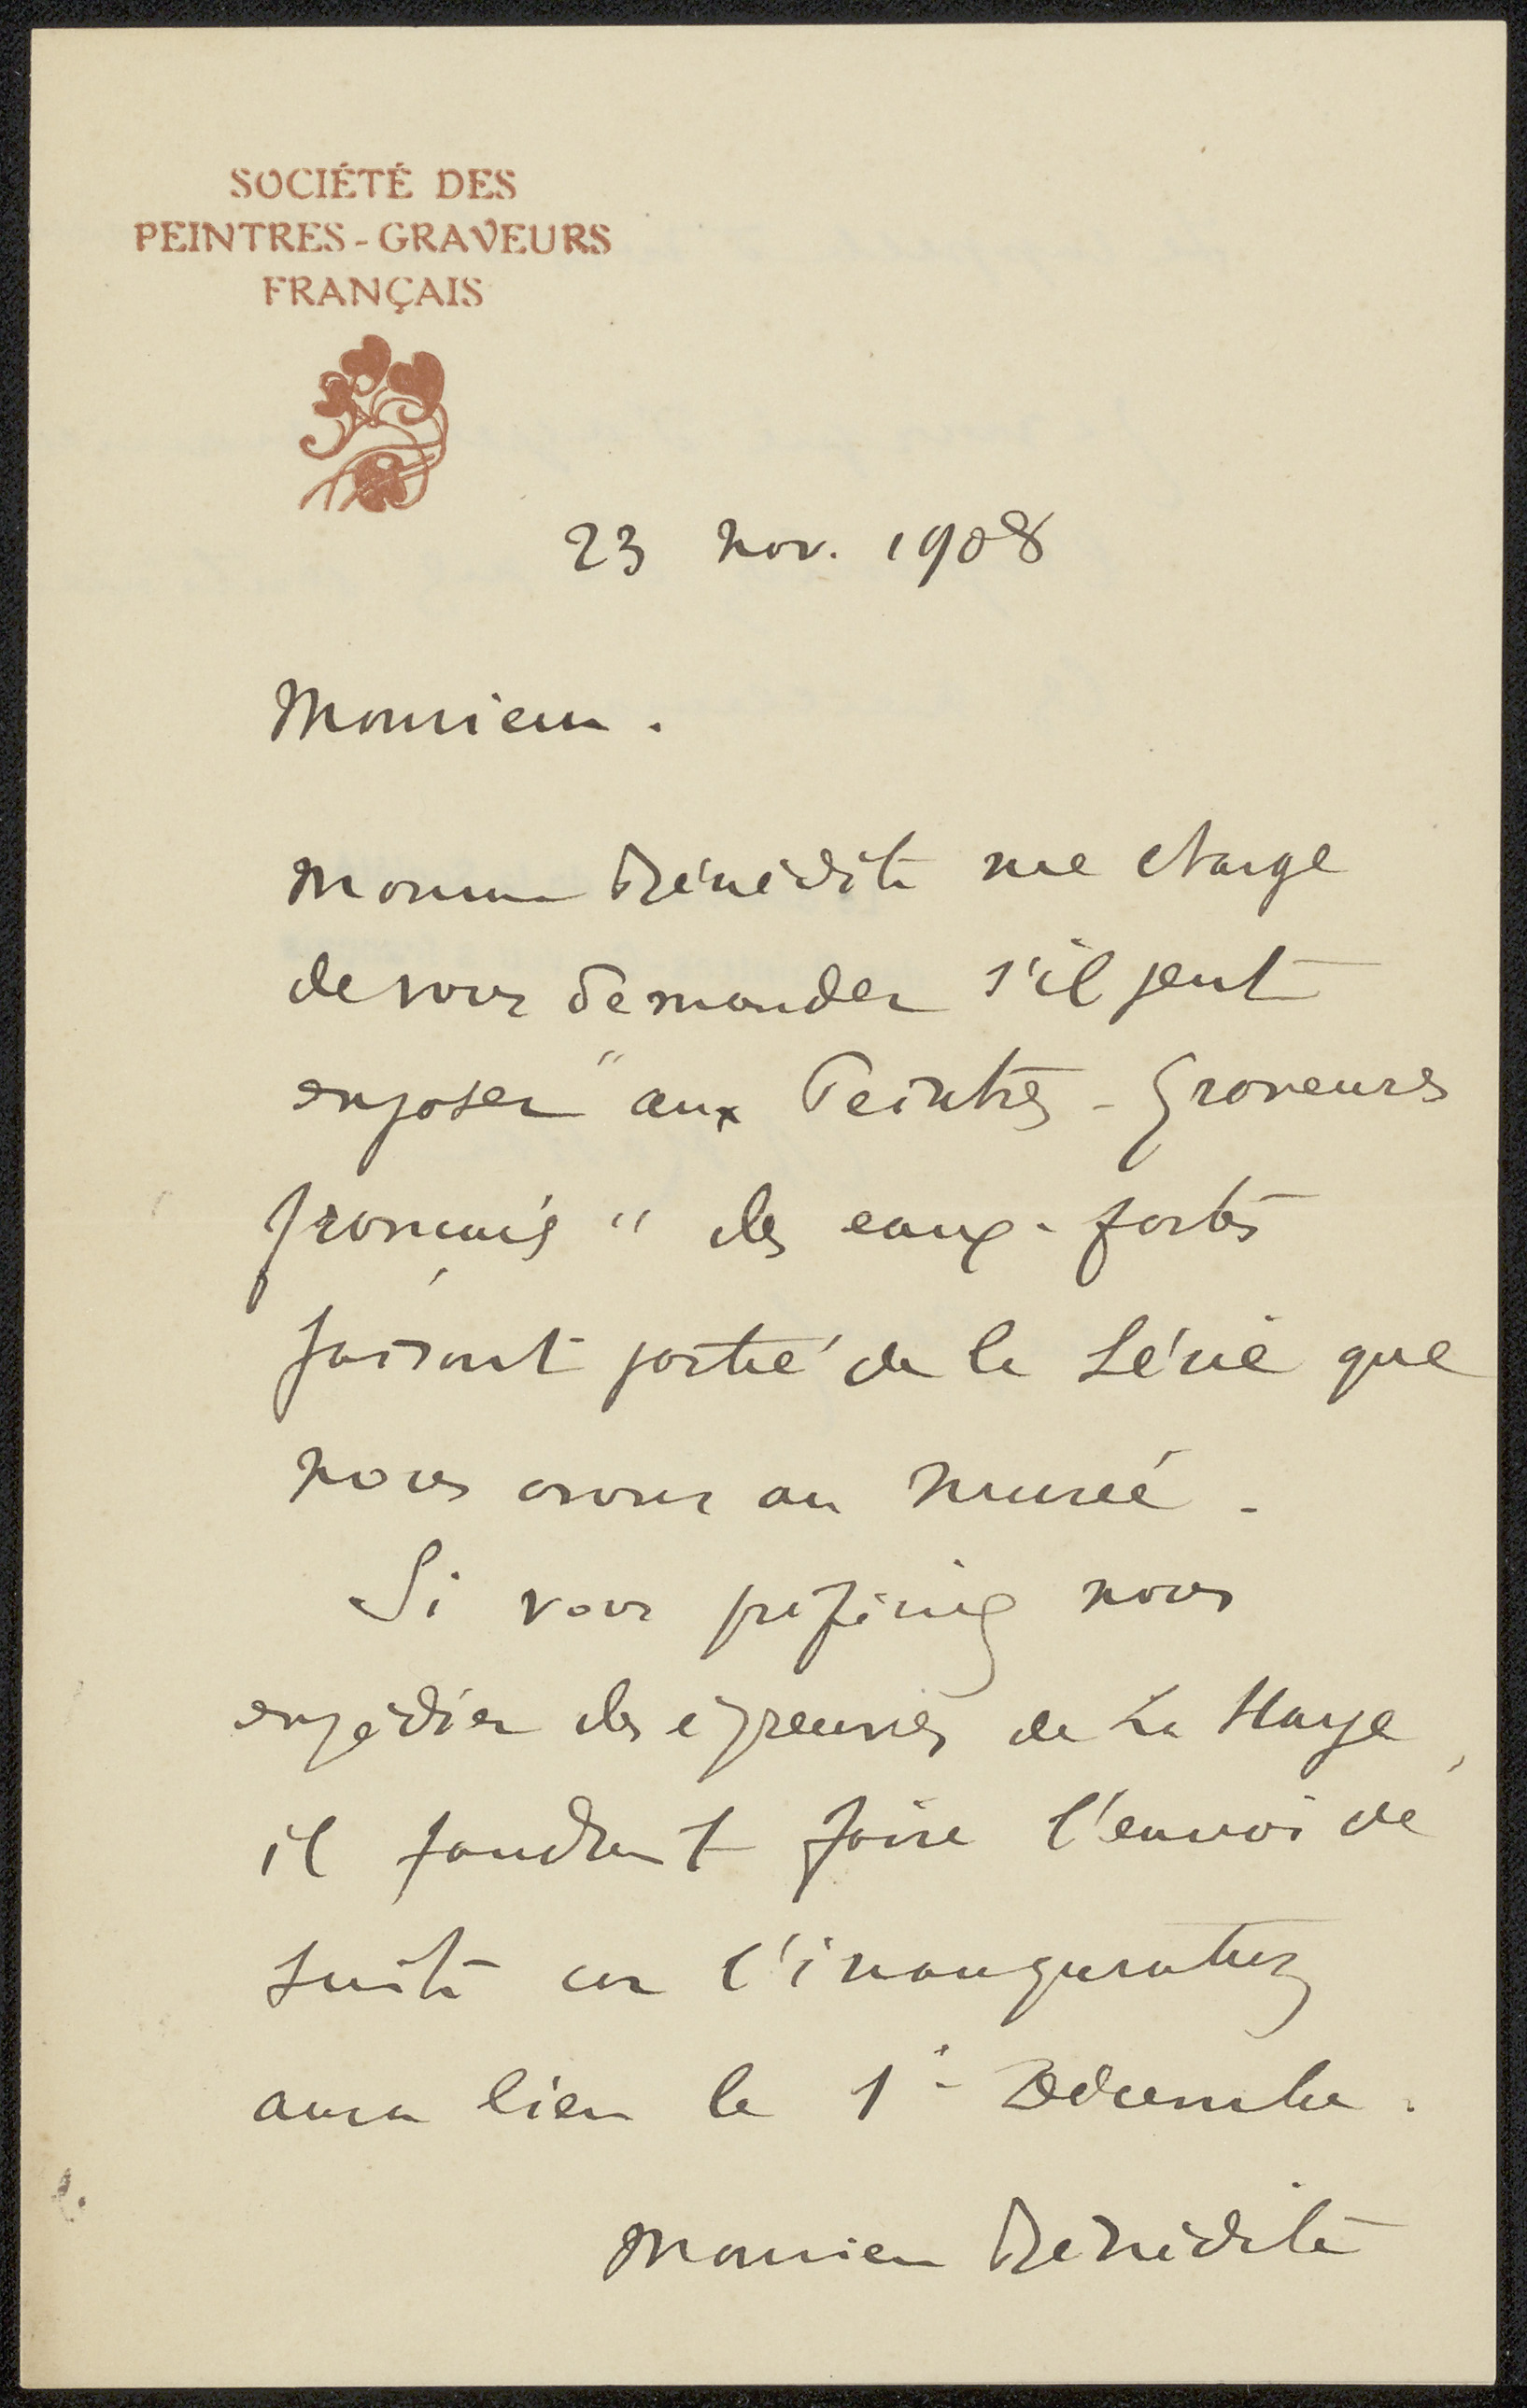 SOCIÉTÉ DES
PEINTRES-GRAVEURS
FRANÇAIS
23 nov. 1908
Monsieur.
Monsieur Bénédite me charge
de vous demander s'il peut
exposer "aux Peintres-Graveurs
français" des eaux-fortes
faisant partie de la série que
nous avons au musée.
Si vous préfériez nous
expédier des épreuves de La Haye,
il faudrait faire l'envoi de
suite car l'inauguration
aura lieu le 1er Décembre.
Monsieur Bénédite